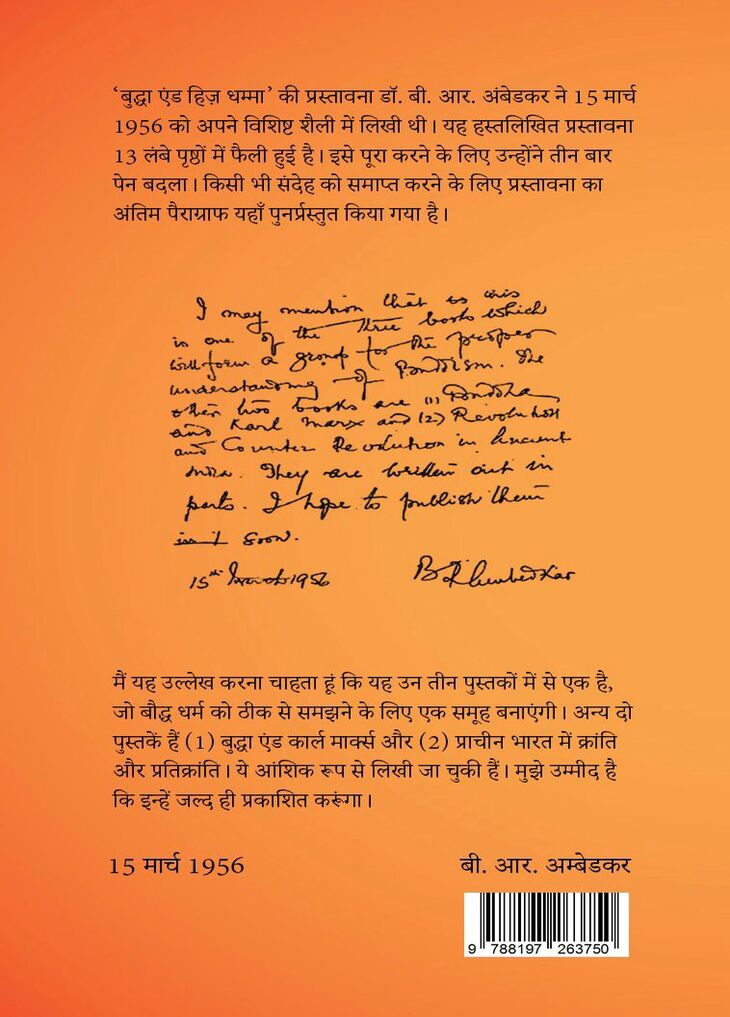 ‘बुद्धा एंड हिज़ धम्मा’ की प्रस्तावना डॉ. बी. आर. अंबेडकर ने 15 मार्च
1956 को अपने विशिष्ट शैली में लिखी थी। यह हस्तलिखित प्रस्तावना
13 लंबे पृष्ठों में फैली हुई है। इसे पूरा करने के लिए उन्होंने तीन बार
पेन बदला। किसी भी संदेह को समाप्त करने के लिए प्रस्तावना का
अंतिम पैराग्राफ यहाँ पुनर्प्रस्तुत किया गया है।
I may mention that this
is one of the three books which
will form a group for the proper
understanding of Buddism. The
other two books are (1) Buddha
and Karl Marx and (2) Revolution
and Counter Revolution in Ancient
India. They are written out in
parts. I hope to publish them
soon.
15th March 1956
B R Ambedkar
मैं यह उल्लेख करना चाहता हूं कि यह उन तीन पुस्तकों में से एक है,
जो बौद्ध धर्म को ठीक से समझने के लिए एक समूह बनाएंगी। अन्य दो
पुस्तकें हैं (1) बुद्धा एंड कार्ल मार्क्स और (2) प्राचीन भारत में क्रांति
और प्रतिक्रांति। ये आंशिक रूप से लिखी जा चुकी हैं। मुझे उम्मीद है
कि इन्हें जल्द ही प्रकाशित करूंगा।
15 मार्च 1956
बी. आर. अम्बेडकर
9 788197 263750